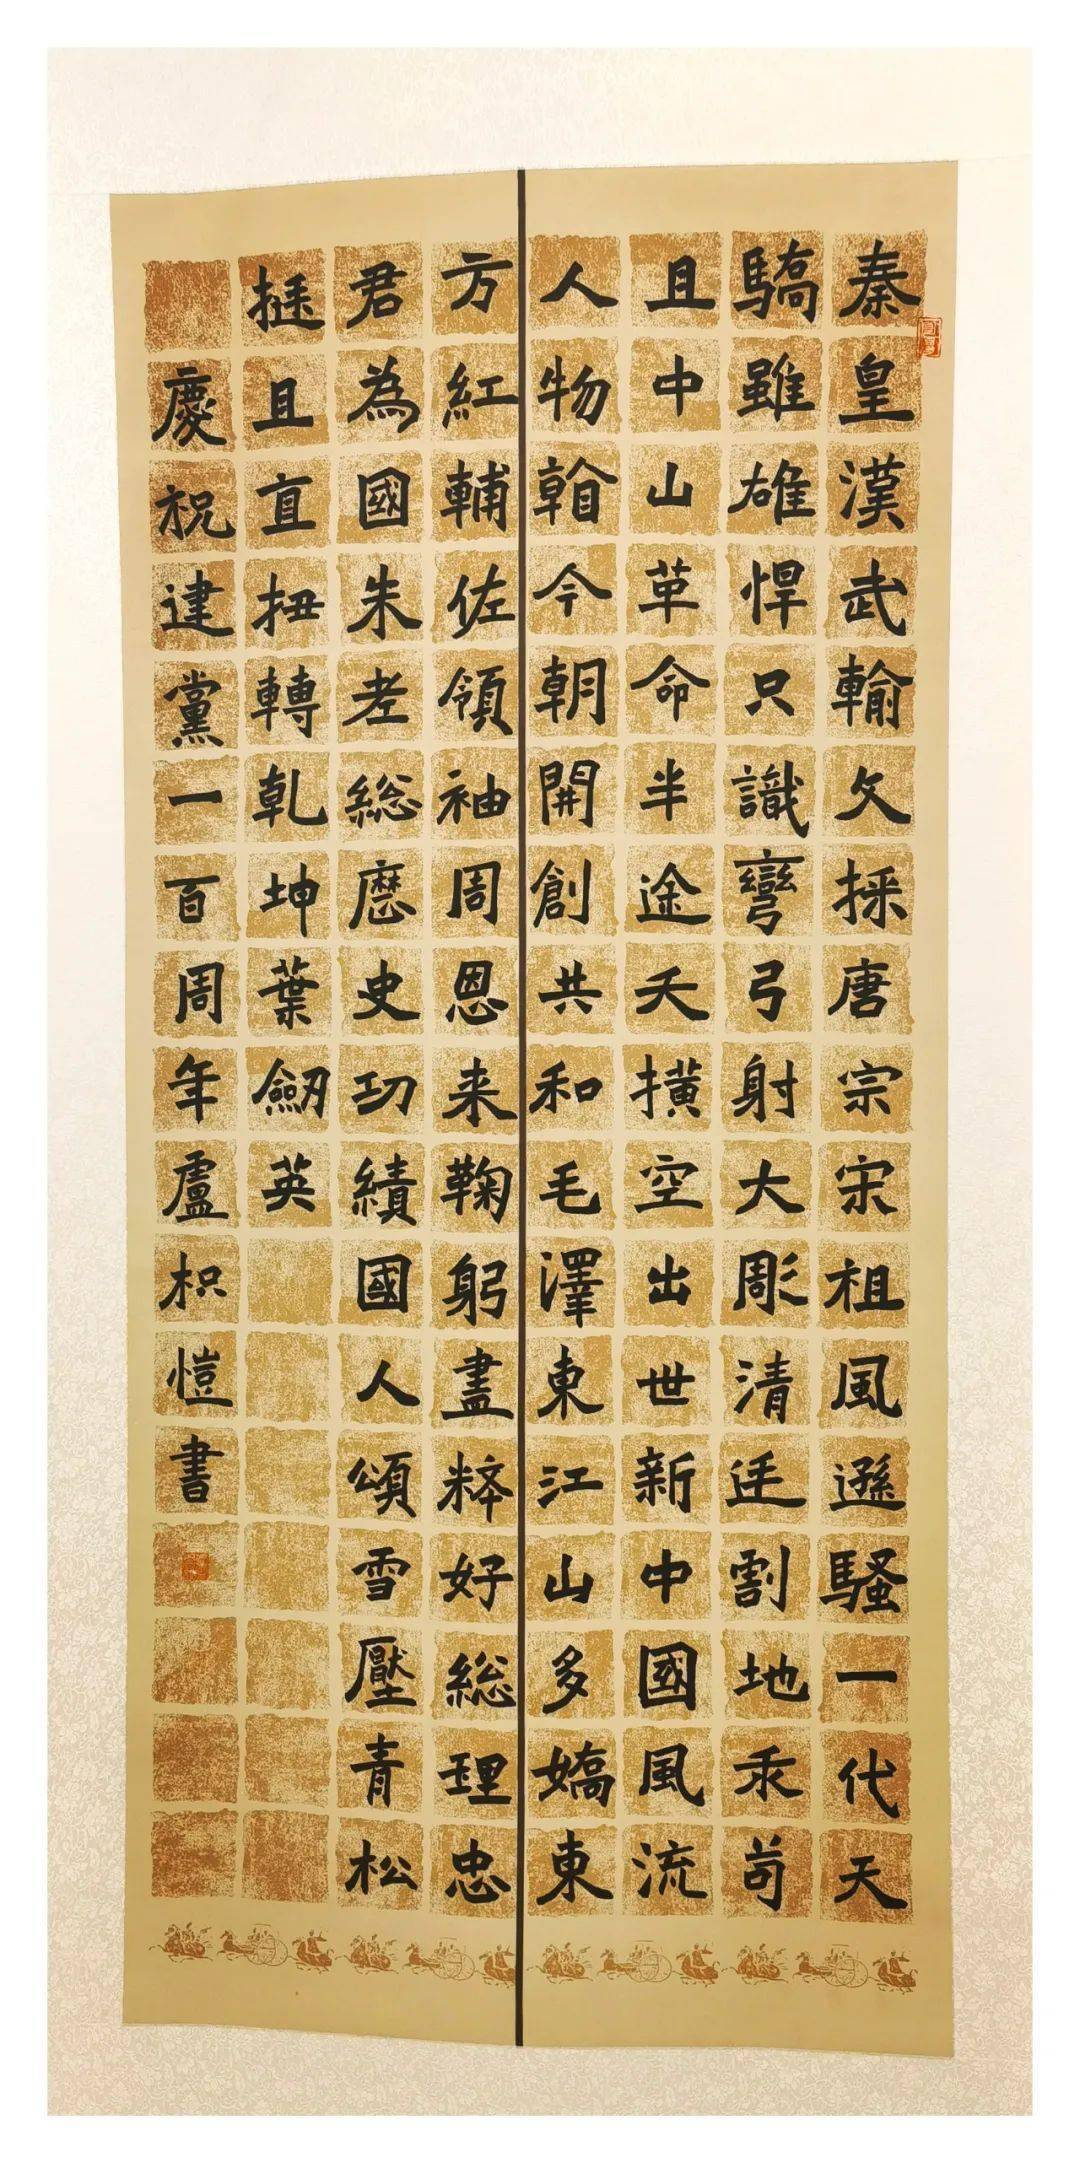 秦皇漢武輸文採唐宗宋祖風遜騷一代天
驕雖雄悍只識彎弓射大彫清廷割地求苟
且中山革命半途夭横空出世新中國風流
人物看今朝開創共和毛澤東江山多嬌東
方紅輔佐領袖周恩来鞠躬盡粹好総理忠
君為國朱老総厯史功績國人頌雪壓青松
挺且直扭轉乾坤葉劒英
慶祝建黨一百周年盧枳愷書